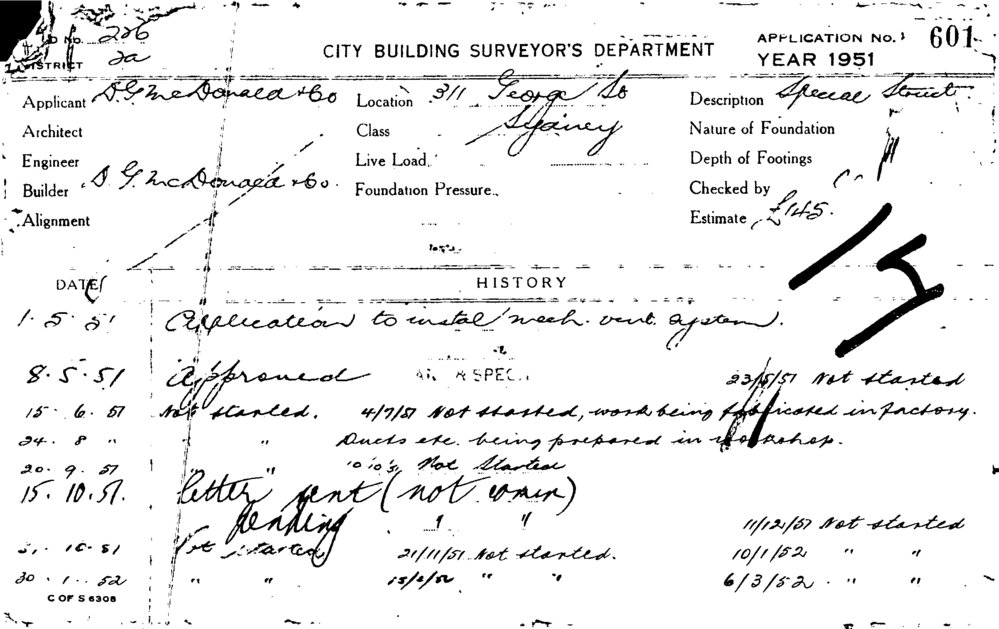 D No. 226
DISTRICT 2a
CITY BUILDING SURVEYOR'S DEPARTMENT
APPLICATION No. 601
YEAR 1951
Applicant D. G. McDonald & Co Location 311 George St Description Special Struct.
Architect Class Sydney Nature of Foundation
Engineer Live Load Depth of Footings
Builder D. G. McDonald & Co. Foundation Pressure Checked by
Alignment Estimate £145.
DATE HISTORY
1. 5. 51 Application to instal mech. vent. system.
8. 5. 51 Approved 23/5/51 Not started
15. 6. 51 Not started. 4/7/51 Not started, work being fabricated in factory.
24. 8 " " Ducts etc. being prepared in workshop.
20. 9. 51 " " 10 10 51 Not Started
15. 10. 51. letter sent (not comm)
pending " 11/12/51 Not started
31. 10. 51 Not started 21/11/51 Not started. 10/1/52 " "
30. 1. 52 " " 15/2/52 " " 6/3/52 " "
C OF S 6308